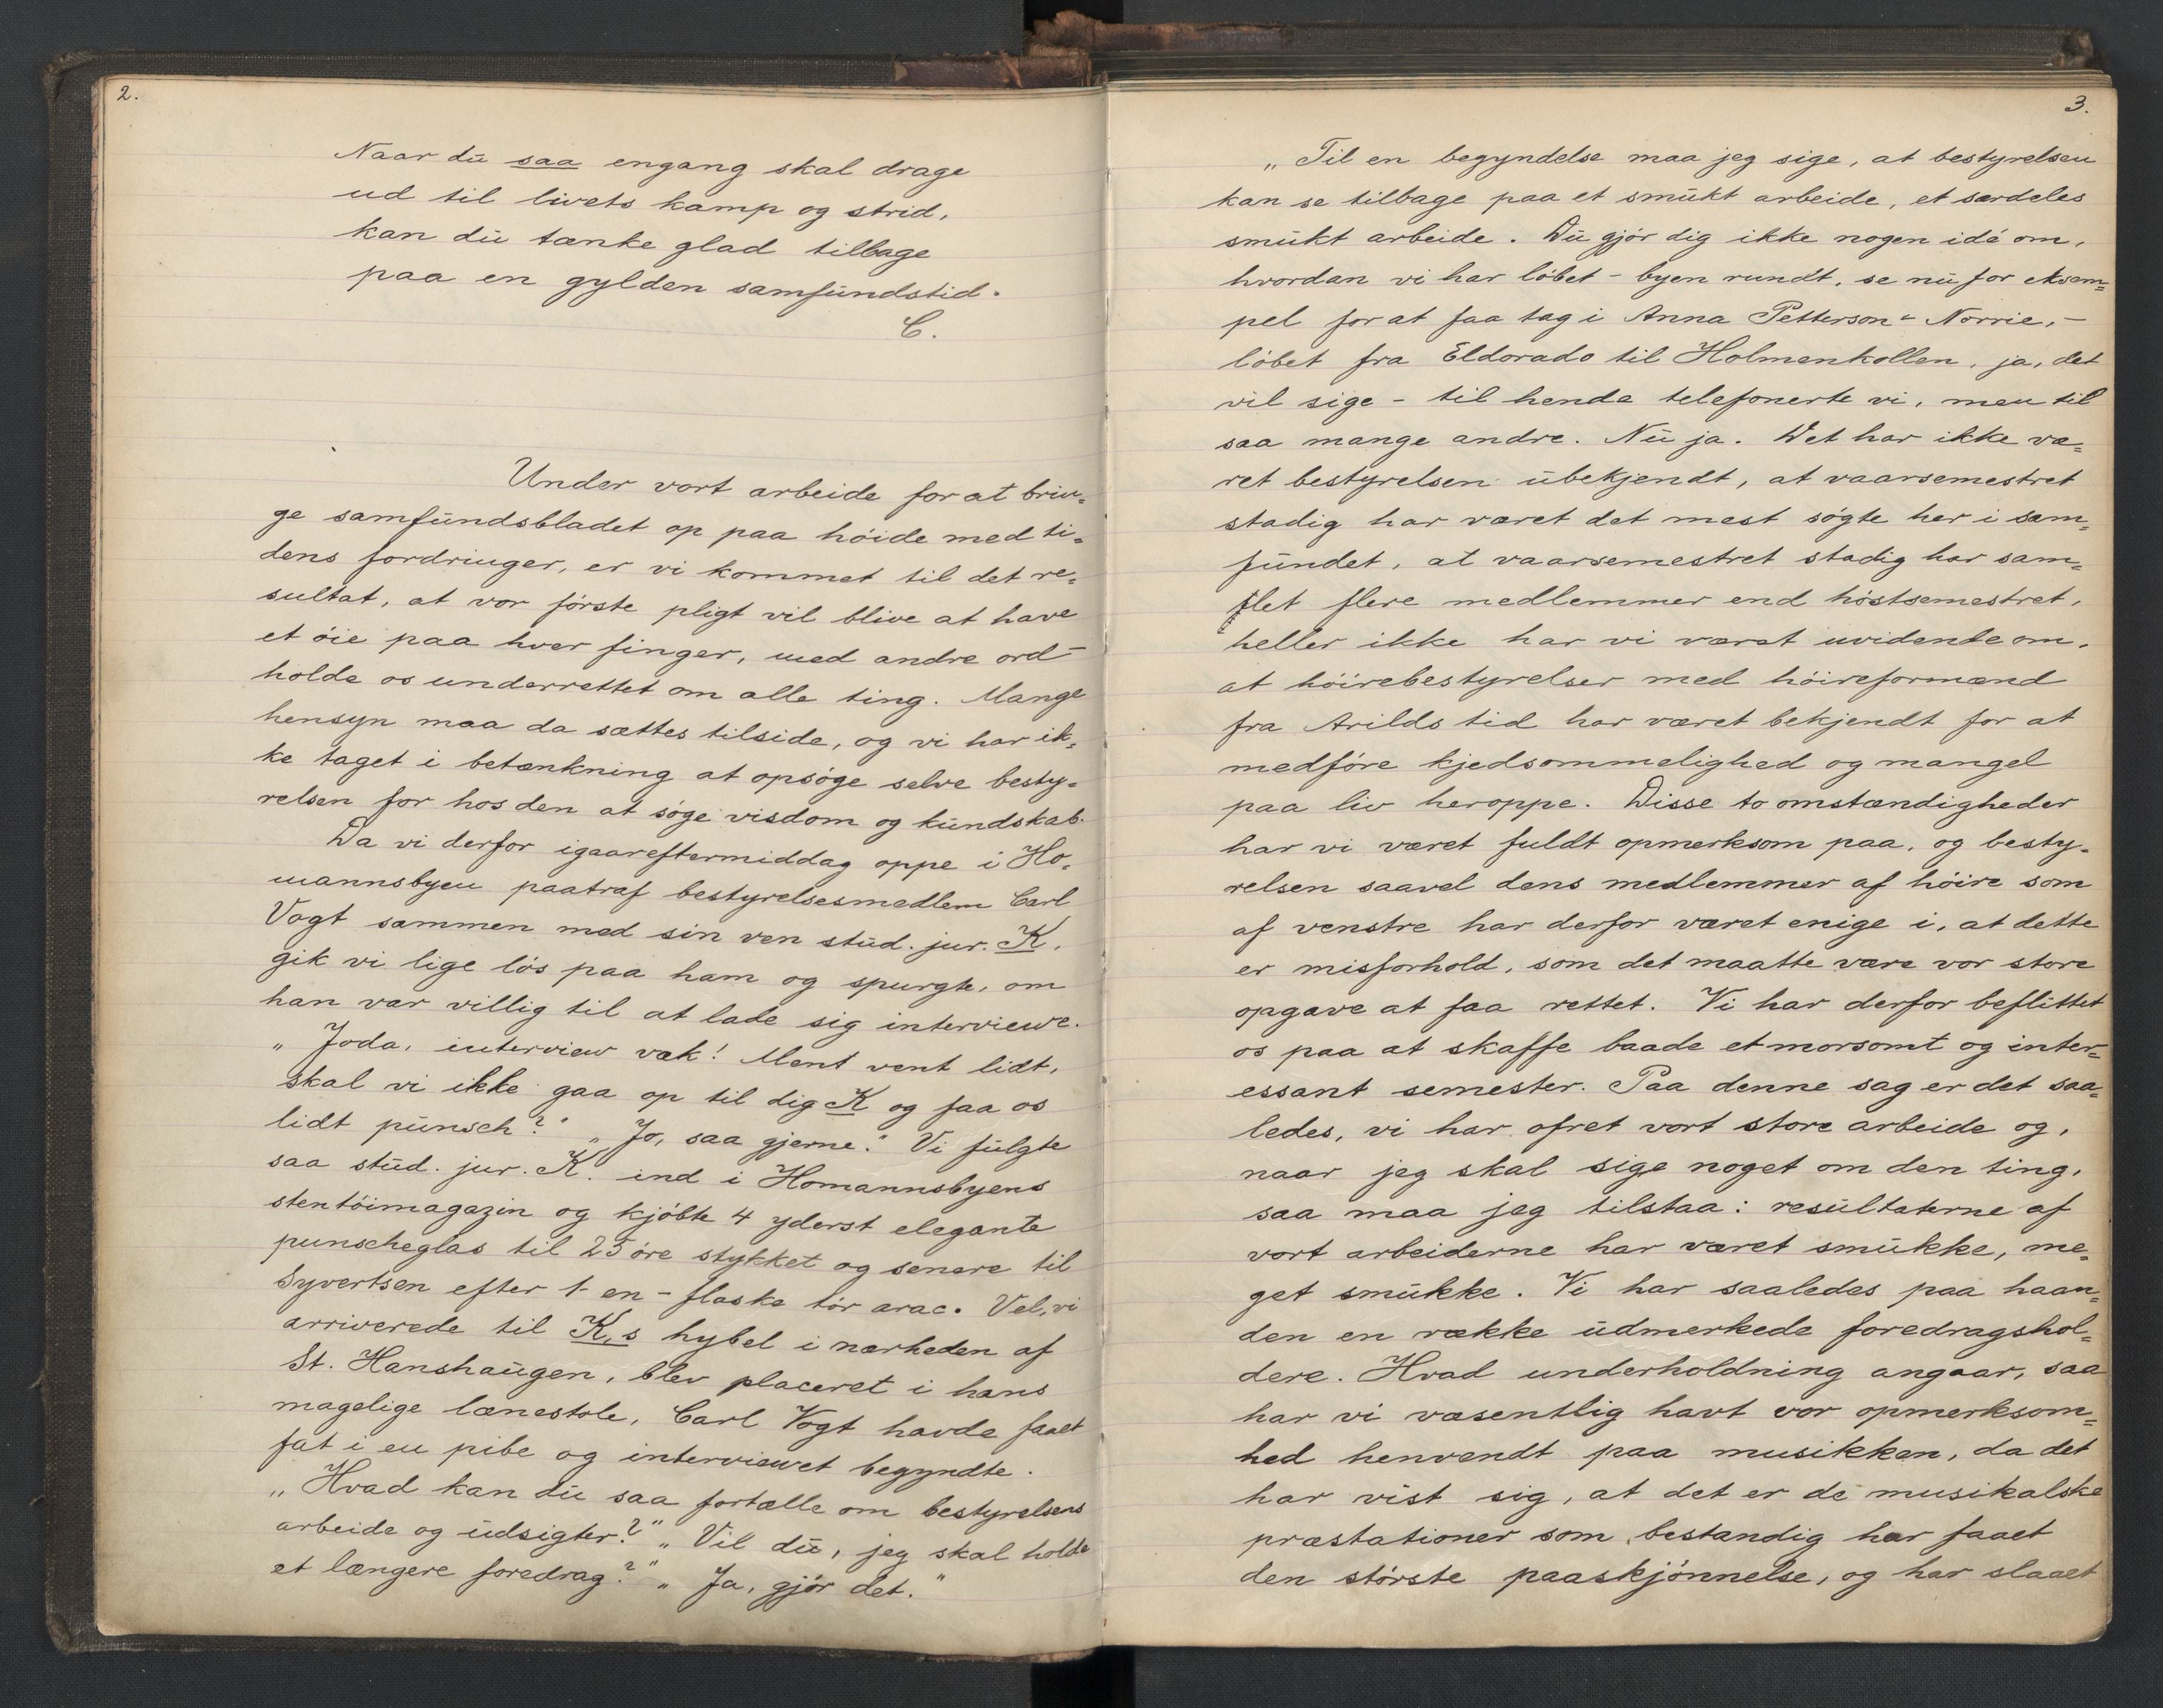 2.
Naar du saa engang skal drage
ud til livets kamp og strid,
kan du tænke glad tilbage
paa en gylden samfundstid.
C.
Under vort arbeide for at brin-
ge samfundsbladet op paa höide med ti-
dens fordringer, er vi kommet til det re-
sultat, at vor förste pligt vil blive at have
et öie paa hver finger, med andre ord -
holde os underrettet om alle ting. Mange
hensyn maa da sættes tilside, og vi har ik-
ke taget i betænkning at opsöge selve besty-
relsen for hos den at söge visdom og kundskab.
Da vi derfor igaareftermiddag oppe i Ho-
mannsbyen paatraf bestyrelsesmedlem Carl
Vogt sammen med sin ven stud. jur. K.
gik vi lige lös paa ham og spurgte, om
han var villig til at lade sig interviewe.
„Joda, interview væk! Ment vent lidt,
skal vi ikke gaa op til dig K og faa os
lidt punsch?" „Jo, saa gjerne." Vi fulgte
saa stud. jur. K. ind i Homannsbyens
stentöimagazin og kjöbte 4 yderst elegante
punscheglas til 25 öre stykket og senere til
Syvertsen efter 1 - en - flaske tör arac. Vel, vi
arriverede til K.s hybel i nærheden af
St. Hanshaugen, blev placeret i hans
magelige lænestole, Carl Vogt havde faaet
fat i en pibe og interviewet begyndte.
„Hvad kan du saa fortælle om bestyrelsens
arbeide og udsigter?" „Vil du, jeg skal holde
et længere foredrag?" „Ja, gjör det."
3.
„Til en begyndelse maa jeg sige, at bestyrelsen
kan se tilbage paa et smukt arbeide, et særdeles
smukt arbeide. Du gjör dig ikke nogen idé om,
hvordan vi har löbet - byen rundt, se nu for eksem-
pel for at faa tag i Anna Petterson-Norrie, -
löbet fra Eldorado til Holmenkollen, ja, det
vil sige - til hende telefonerte vi, men til
saa mange andre. Nu ja. Det har ikke væ-
ret bestyrelsen ubekjendt, at vaarsemestret
stadig har været det mest sögte her i sam-
fundet, at vaarsemestret stadig har sam-
let flere medlemmer end höstsemestret,
heller ikke har vi været uvidende om,
at höirebestyrelser med höireformænd
fra Arilds tid har været bekjendt for at
medföre kjedsommelighed og mangel
paa liv heroppe. Disse to omstændigheder
har vi været fuldt opmerksom paa, og besty-
relsen saavel dens medlemmer af höire som
af venstre har derfor været enige i, at dette
er misforhold, som det maatte være vor store
opgave at faa rettet. Vi har derfor beflittet
os paa at skaffe baade et morsomt og inter-
essant semester. Paa denne sag er det saa-
ledes, vi har ofret vort store arbeide og,
naar jeg skal sige noget om den ting,
saa maa jeg tilstaa: resultaterne af
vort arbeiderne har været smukke, me-
get smukke. Vi har saaledes paa haan-
den en række udmerkede foredragshol-
dere. Hvad underholdning angaar, saa
har vi væsentlig havt vor opmerksom-
hed henvendt paa musikken, da det
har vist sig, at det er de musikalske
præstationer som bestandig har faaet
den störste paaskjönnelse, og har slaaet